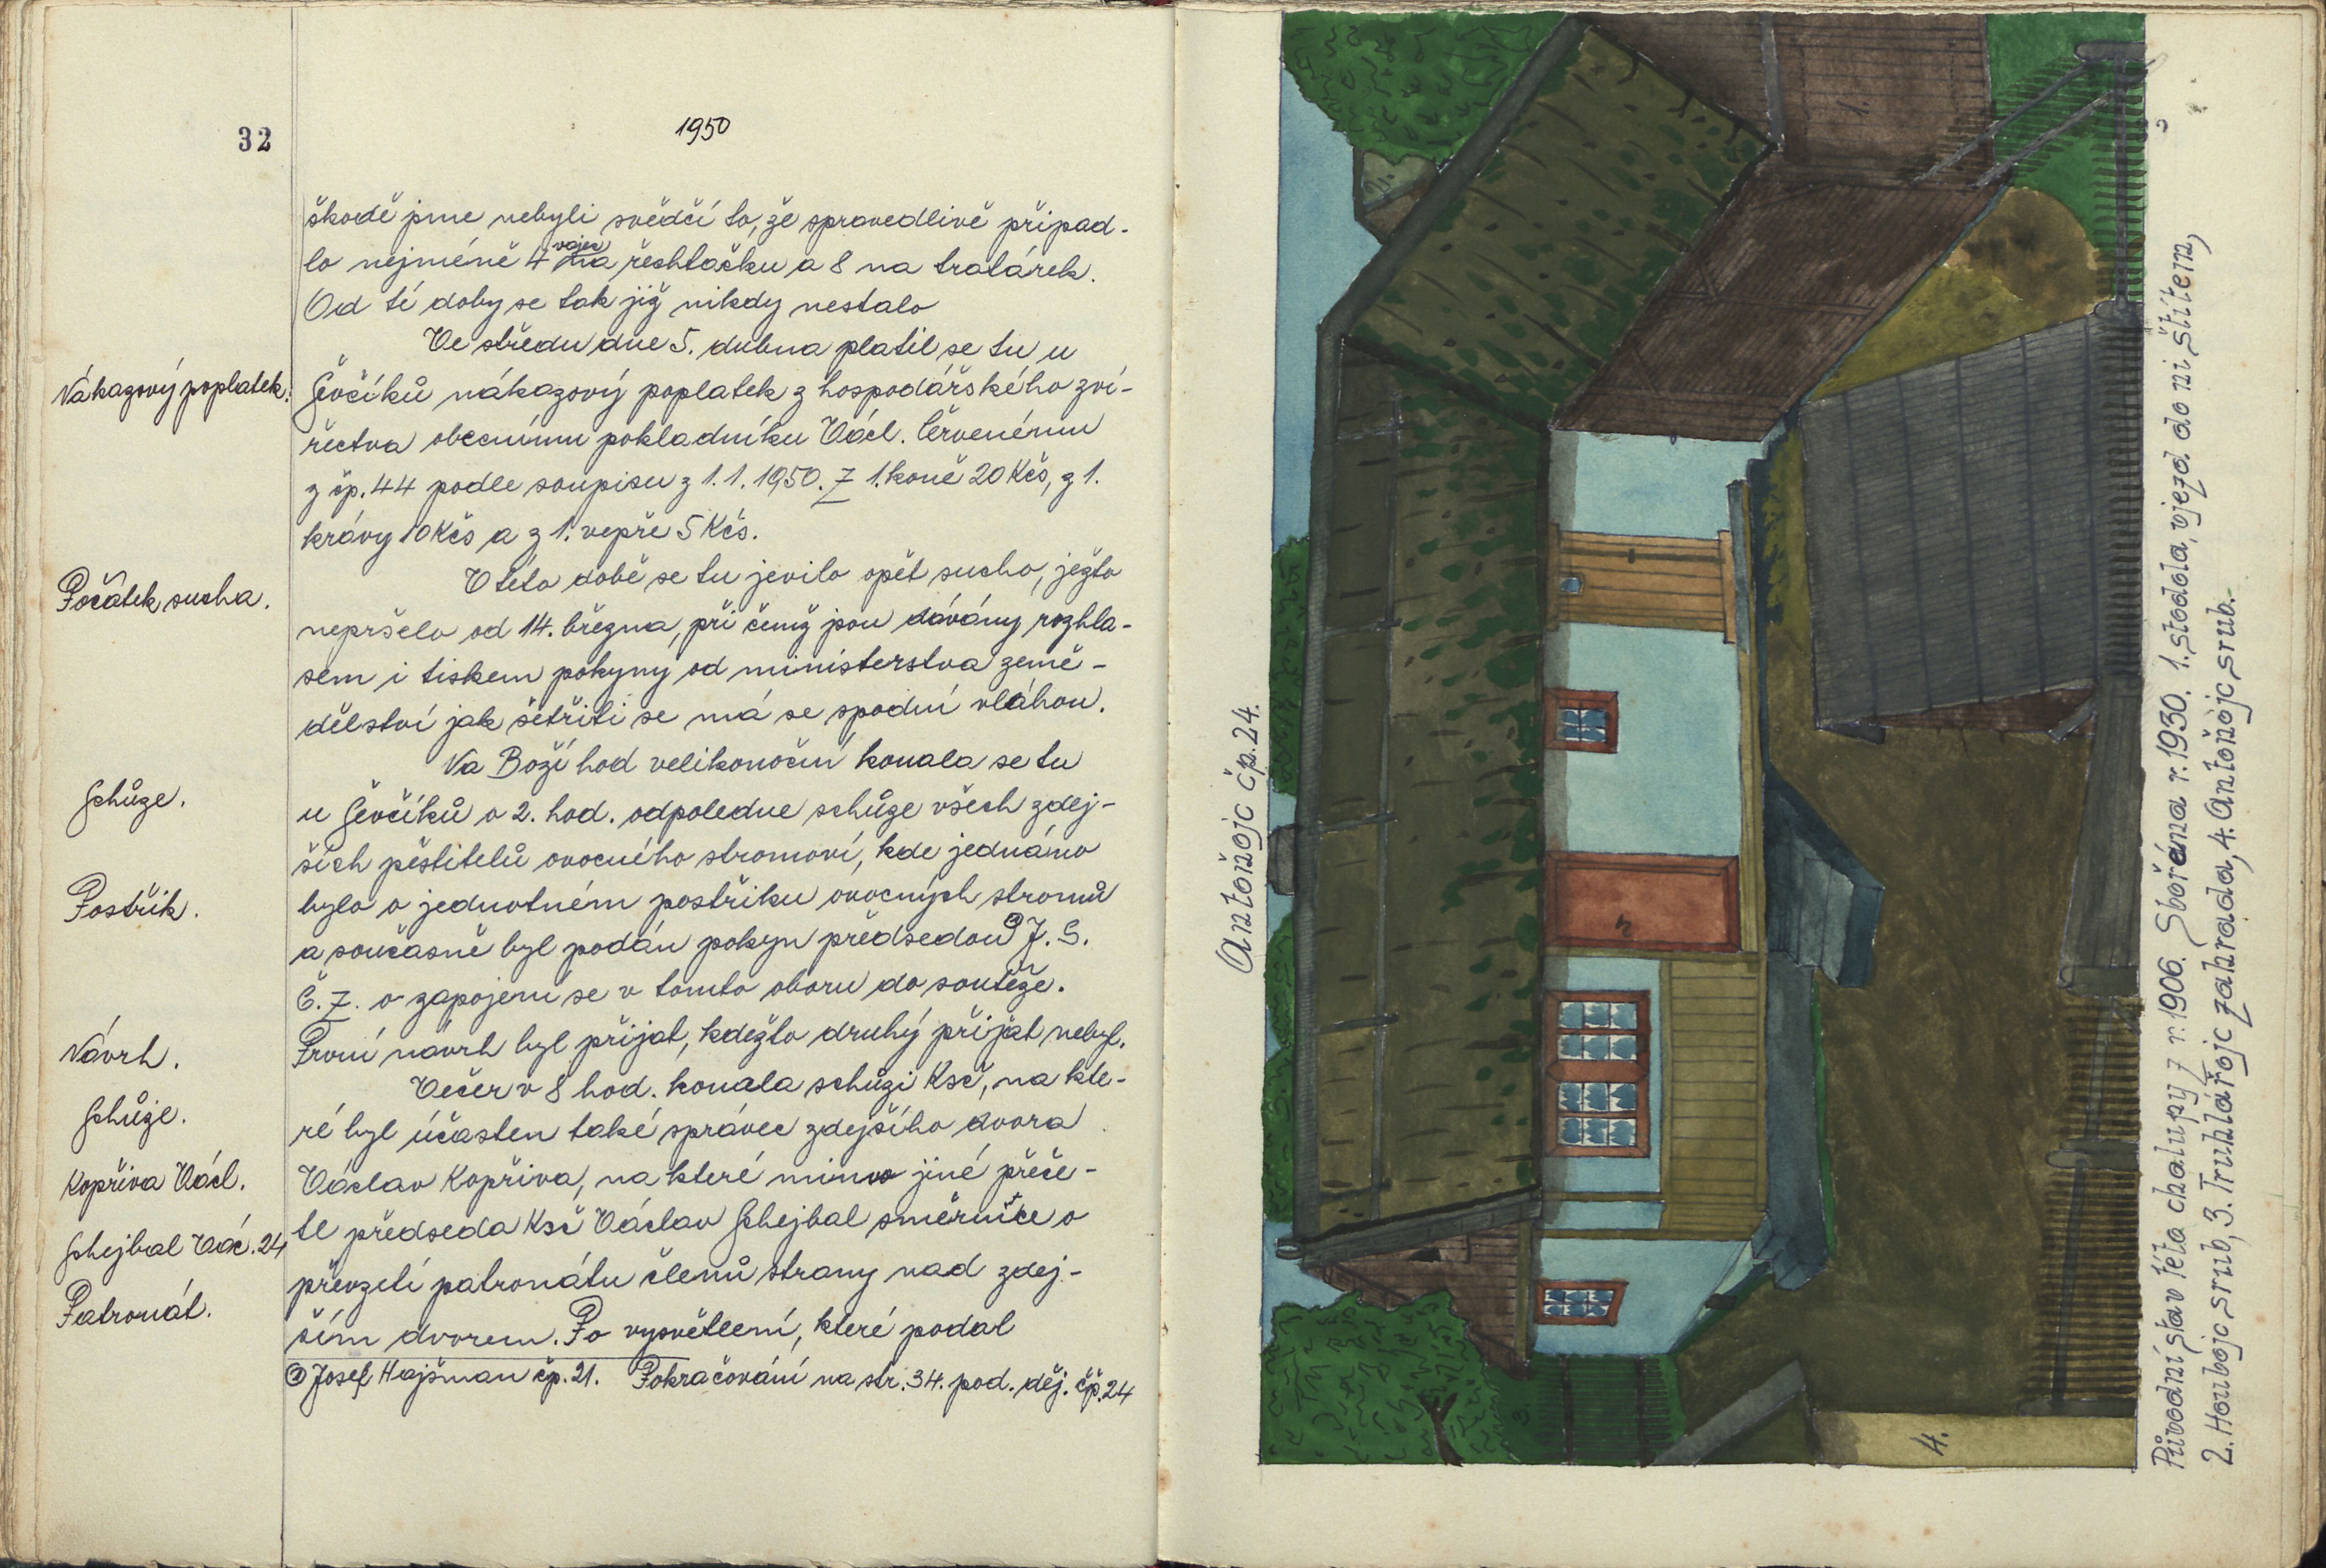 32
1950
škodě jsme nebyli svědčí to, že spravedlivě připad-
lo nejméně 4 vajec na řechtačku a 8 na tratárek.
Od té doby se tak již nikdy nestalo
Ve středu dne 5. dubna platil se tu u
Nákazový poplatek.
Ševčíků nákazový poplatek z hospodářského zví-
řectva obecnímu pokladníku Václ. Červenému
z čp. 44 podle soupisu z 1. 1. 1950. Z 1. koně 20 Kčs, z 1.
krávy 10 Kčs a z 1. vepře 5 Kčs.
V této době se tu jevilo opět sucho, ježto
Počátek sucha.
nepršelo od 14. března, při čemž jsou dávány rozhla-
sem i tiskem pokyny od ministerstva země-
dělství jak šetřiti se má se spodní vláhou.
Na Boží hod velikonoční konala se tu
Schůze.
u Ševčíků o 2. hod. odpoledne schůze všech zdej-
ších pěstitelů ovocného stromoví, kde jednáno
Postřik.
bylo o jednotném postřiku ovocných stromů
a současně byl podán pokyn předsedou J. S.
Č. Z. o zapojení se v tomto oboru do soutěže.
Návrh.
První návrh byl přijat, kdežto druhý přijat nebyl.
Večer v 8 hod. konala schůzi Ksč, na kte-
Schůze.
ré byl účasten také správec zdejšího dvora
Kopřiva Václ.
Václav Kopřiva, na které mimo jiné přeče-
Schejbal Vác. 24
tl předseda Ksč Václav Schejbal směrnice o
převzetí patronátu členů strany nad zdej-
Patronát.
ším dvorem. Po vysvětlení, které podal
Josef Hajšman čp. 21. Pokračování na str. 34. pod. děj. čp. 24
Antoňojc čp. 24.
1.
2
3.
4.
Původní stav této chalupy z r. 1906. Sbořéna r. 1930. 1. stodola, vjezd do ni štítem,
2. Houbojc srub, 3. Truhlářojc zahrada, 4. Antoňojc srub.